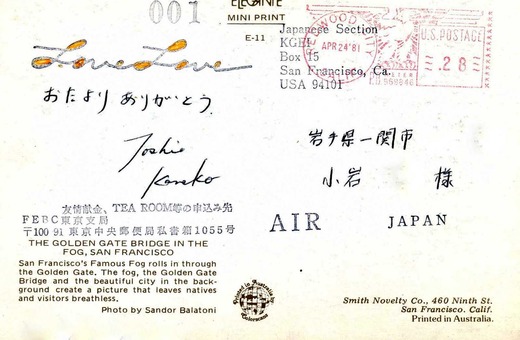 001
ELEGANTE
MINI PRINT
E-11
Love Love
おたより ありがとう.
Toshio
Kaneko
友情献金、TEA ROOM等の申込み先
FEBC東京支局
〒100 91 東京中央郵便局私書箱1055号
THE GOLDEN GATE BRIDGE IN THE
FOG, SAN FRANCISCO
San Francisco's Famous Fog rolls in through
the Golden Gate. The fog, the Golden Gate
Bridge and the beautiful city in the back-
ground create a picture that leaves natives
and visitors breathless.
Photo by Sandor Balatoni
Japanese Section
KGEI
Box 15
San Francisco, Ca.
USA 94101
REDWOOD CITY
APR 24 '81
CALIF
U.S. POSTAGE
.28
岩手県一関市
小岩 様
AIR JAPAN
Printed in Australia by
Colorscans
Smith Novelty Co., 460 Ninth St.
San Francisco. Calif.
Printed in Australia.